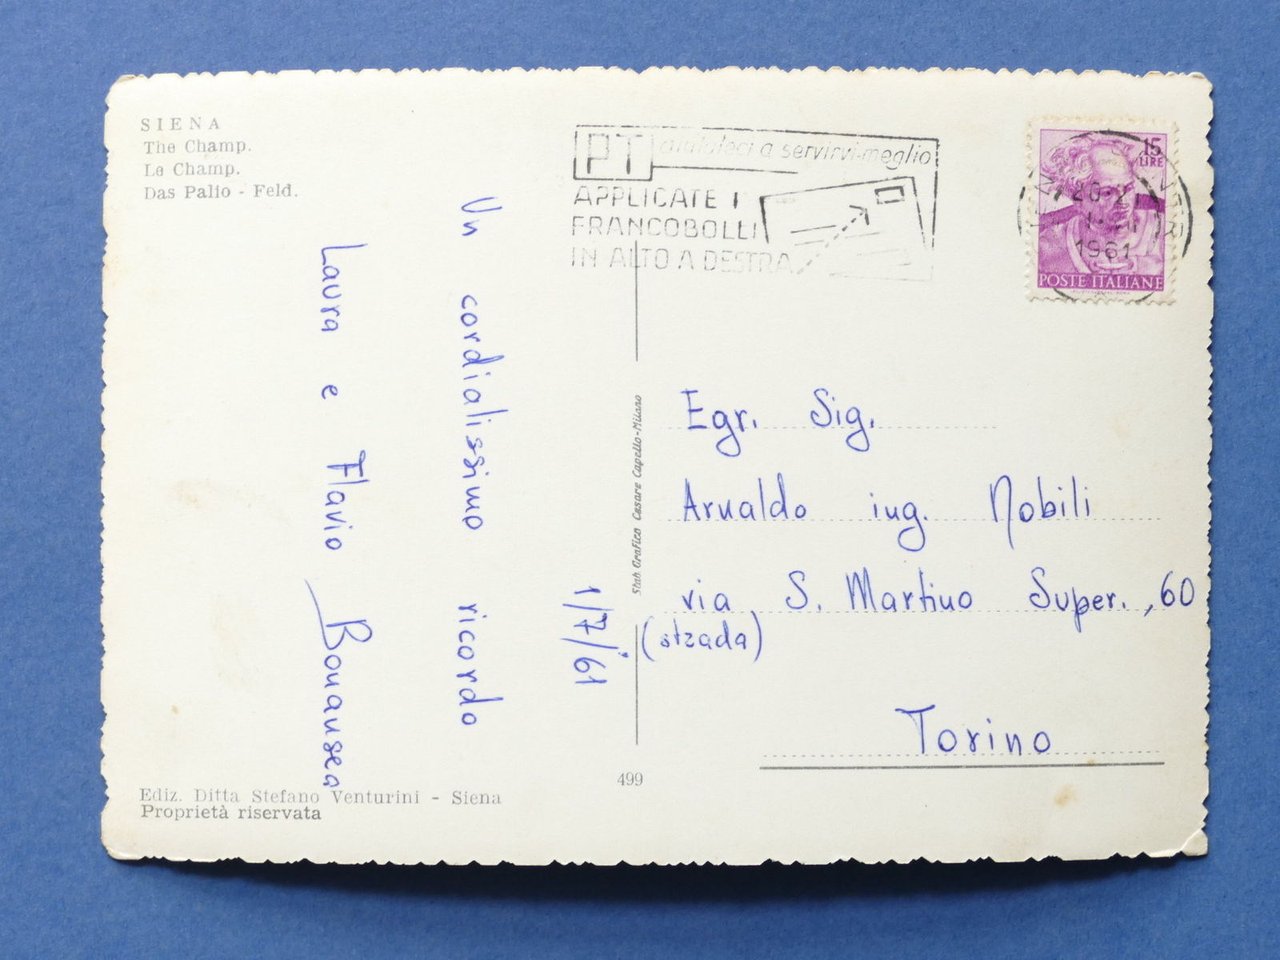 SIENA
The Champ.
Le Champ.
Das Palio - Feld.
PT aiutateci a servirvi meglio
APPLICATE I
FRANCOBOLLI
IN ALTO A DESTRA
15
LIRE
20-21
1961
POSTE ITALIANE
Un cordialissimo ricordo
Laura e Flavio Bonansea
1/7/61
Stab. Grafico Cesare Capello-Milano
Egr. Sig.
Arnaldo ing. Nobili
via S. Martino Super., 60
(strada)
Torino
499
Ediz. Ditta Stefano Venturini - Siena
Proprietà riservata